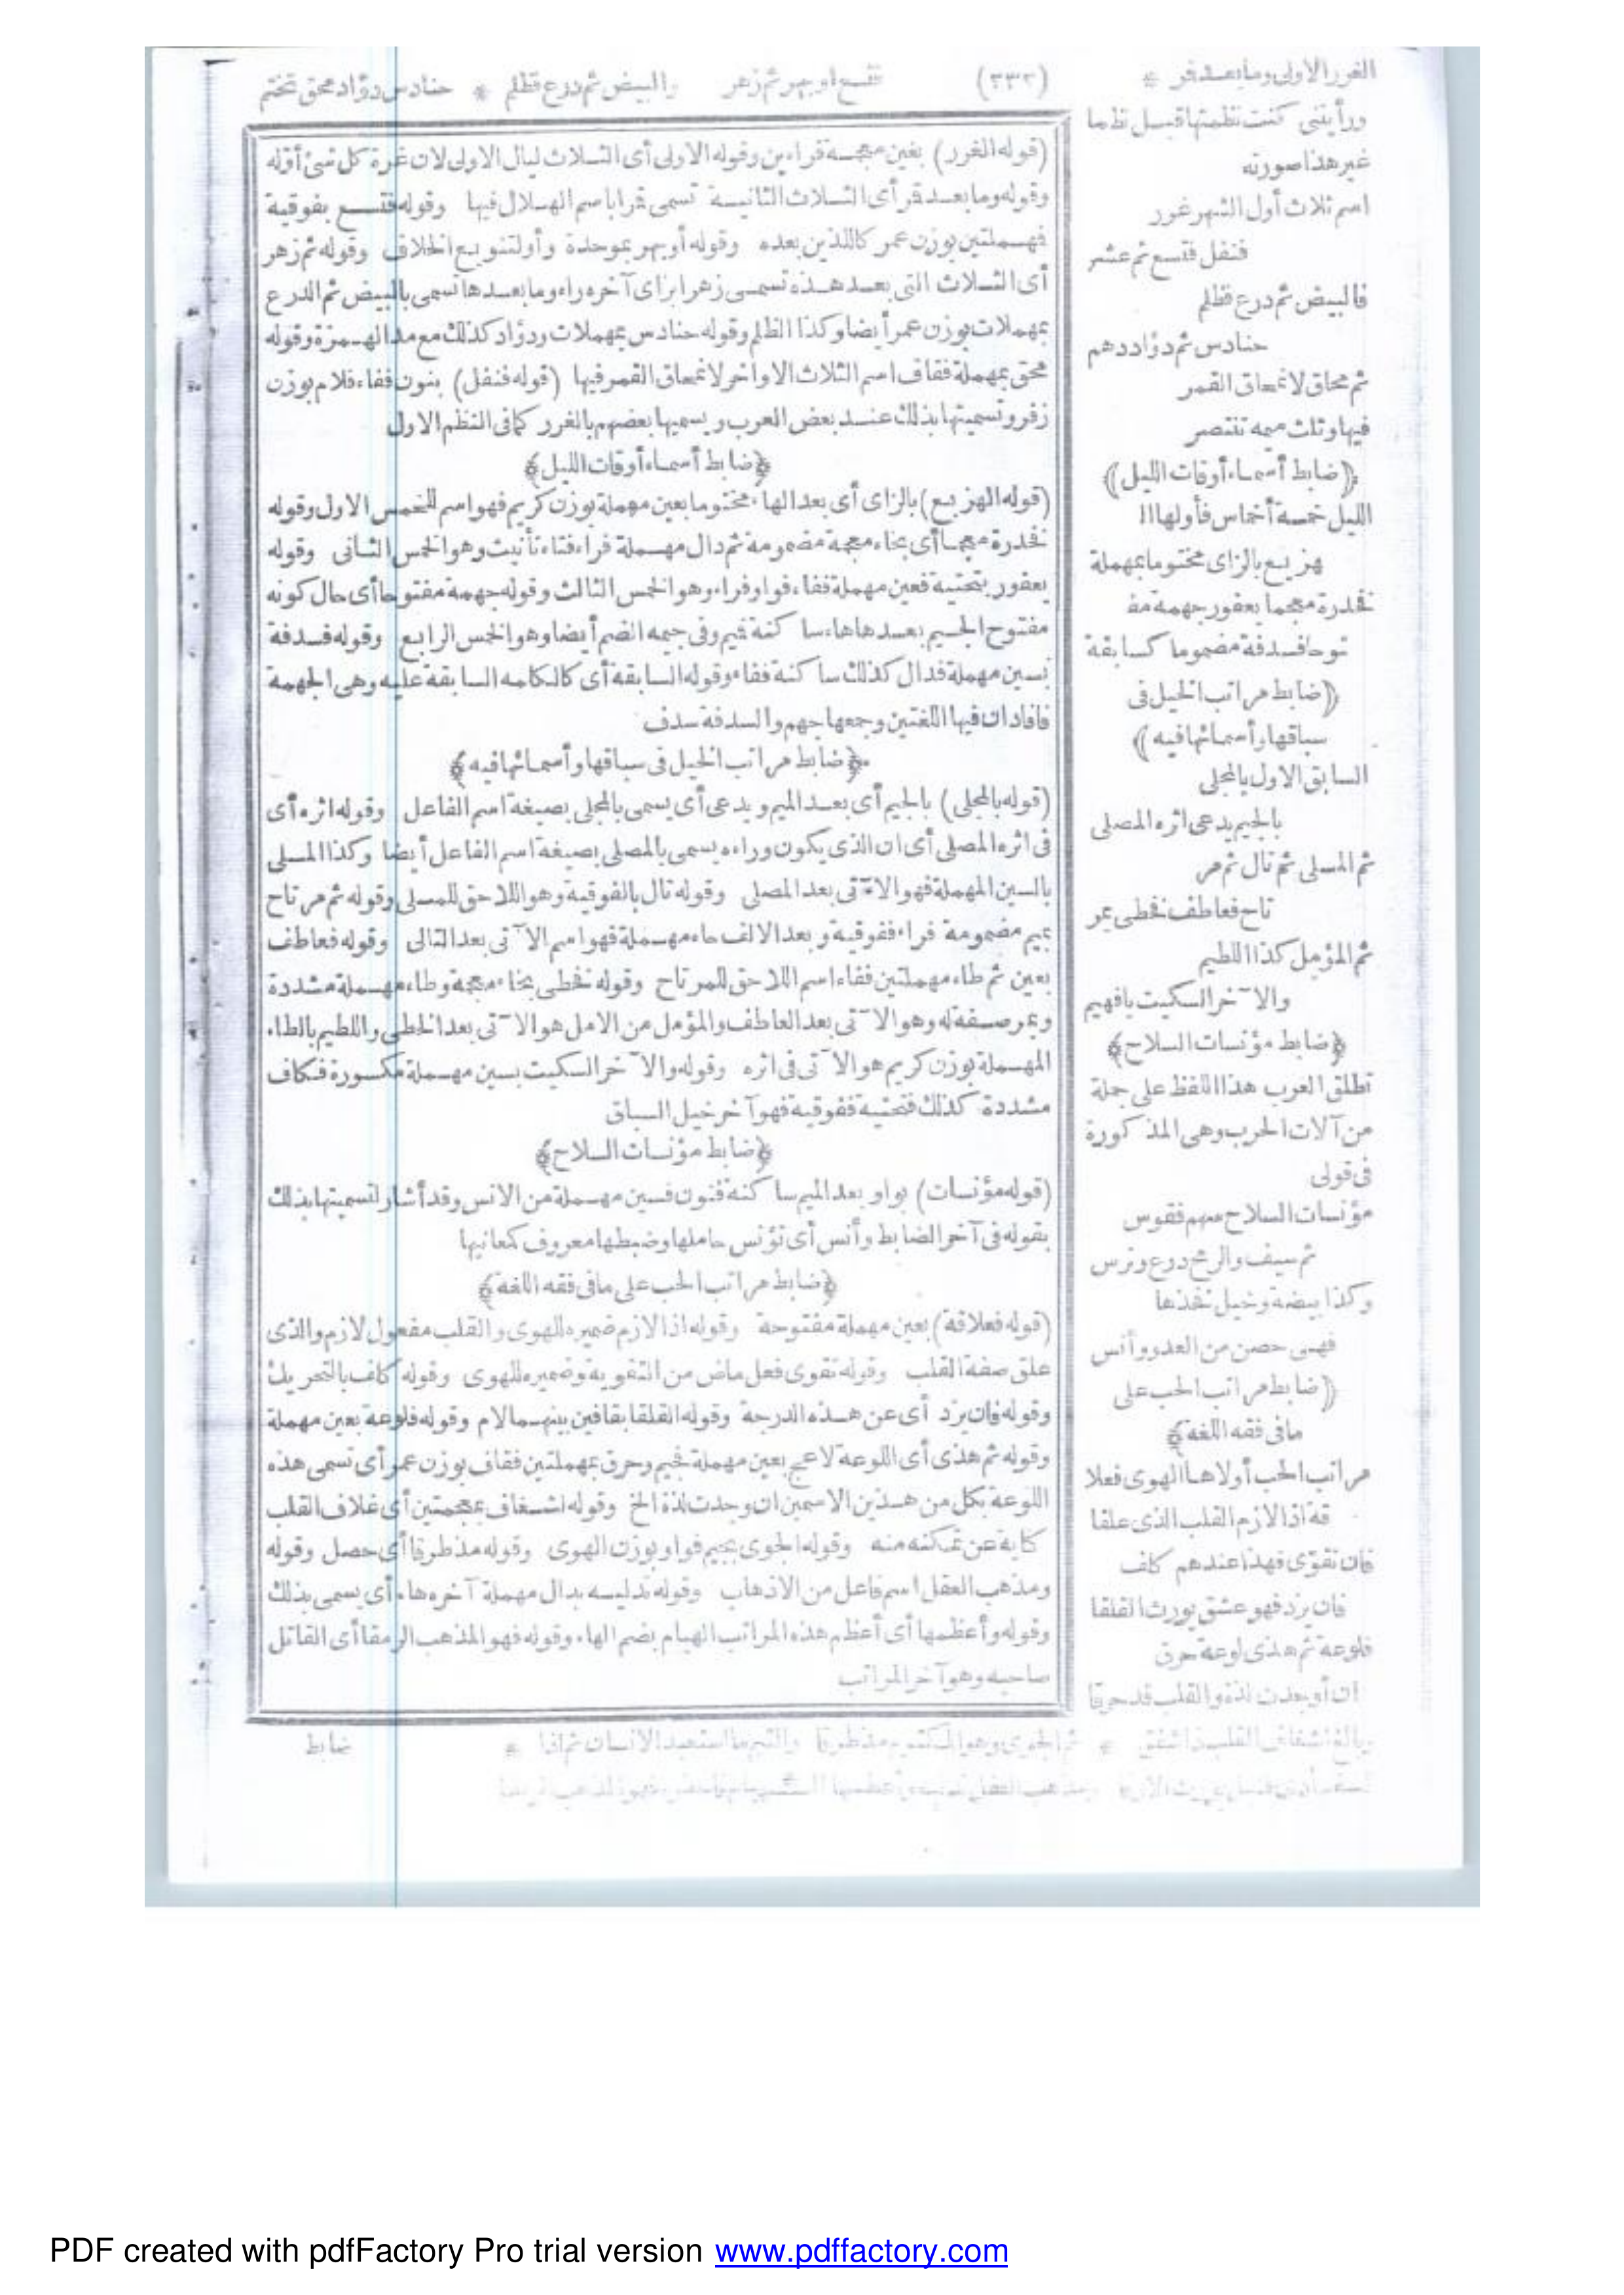 الغرر الاولى وما بعد قر * فتسع او بهر ثم زهر (٢٣٢) والبيض ثم درع فظلم * حنادس دؤاد محق تختم
ورأيتنى كنت نظمتها قبل نظ ما
غير هذا صورته
اسم ثلاث أول الشهر غرر
فنفل فتسع ثم عشر
فالبيض ثم درع فظلم
حنادس ثم دؤاد دهم
ثم محاق لانمحاق القمر
فيها وثلث ميمه تنتصر
﴿ضابط أسماء أوقات الليل﴾
الليل خمسة أخماس فأولها الـ
هزيع بالزاى مختوما بمهملة
فخدرة معجما يعفور جهمة مفـ
توحا فسدفة مضموما كسابقة
﴿ضابط مراتب الخيل فى
سباقها وأسمائها فيه﴾
السابق الاول بالمجلى
بالجيم يدعى اثره المصلى
ثم المسلى ثم تال ثم مر
تاح فعاطف فخطى يمر
ثم المؤمل كذا اللطيم
والآخر السكيت يا فهيم
﴿ضابط مؤنسات السلاح﴾
تطلق العرب هذا اللفظ على جملة
من آلات الحرب وهى المذكورة
فى قولى
مؤنسات السلاح سهم فقوس
ثم سيف والرمح درع وترس
وكذا بيضة وخيل تخذها
فهى حصن من العدو وأنس
﴿ضابط مراتب الحب على
ما فى فقه اللغة﴾
مراتب الحب أولاها الهوى فعلا
قة اذا لازم القلب الذى علقا
فان تقوّى فهذا عندهم كلف
فان يزد فهو عشق يورث القلقا
فلوعة ثم هذى لوعة حرق
ان أوجدت لذة والقلب قد حرقا
(قوله الغرر) بغين معجمة فراءين وقوله الاولى أى الثلاث ليال الاولى لان غرة كل شئ أوّله
وقوله وما بعد قر أى الثلاث الثانية تسمى قرا باسم الهلال فيها وقوله فتسع بفوقية
فمهملتين بوزن عمر كاللذين بعده وقوله أو بهر بموحدة وأو لتنويع الخلاف وقوله ثم زهر
أى الثلاث التى بعد هذه تسمى زهرا بزاى آخره راء وما بعدها تسمى بالبيض ثم الدرع
بمهملات بوزن عمر أيضا وكذا الظلم وقوله حنادس بمهملات ودؤاد كذلك مع مد الهمزة وقوله
محق بمهملة فقاف اسم الثلاث الاواخر لانمحاق القمر فيها (قوله فنفل) بنون ففاء فلام بوزن
زفر وتسميتها بذلك عند بعض العرب ويسميها بعضهم بالغرر كما فى النظم الاول
﴿ضابط أسماء أوقات الليل﴾
(قوله الهزيع) بالزاى أى بعد الهاء مختوما بعين مهملة بوزن كريم فهو اسم للخمس الاول وقوله
فخدرة معجما أى بخاء معجمة مضمومة ثم دال مهملة فراء فتاء تأنيث وهو الخمس الثانى وقوله
يعفور بتحتية فعين مهملة ففاء فواو فراء وهو الخمس الثالث وقوله جهمة مفتوحا أى حال كونه
مفتوح الجيم بعدها هاء ساكنة فميم وفى جيمه الضم أيضا وهو الخمس الرابع وقوله فسدفة
بسين مهملة فدال كذلك ساكنة ففاء وقوله السابقة أى كالكلمه السابقة عليه وهى الجهمة
فافاد ان فيها اللغتين وجمعها جهم والسدفة سدف
﴿ضابط مراتب الخيل فى سباقها وأسمائها فيه﴾
(قوله بالمجلى) بالجيم أى بعد الميم ويدعى أى يسمى بالمجلى بصيغة اسم الفاعل وقوله اثره أى
فى اثره المصلى أى ان الذى يكون وراءه يسمى بالمصلى بصيغة اسم الفاعل أيضا وكذا المسلى
بالسين المهملة فهو الآتى بعد المصلى وقوله تال بالفوقية وهو اللاحق للمسلى وقوله ثم مرتاح
بميم مضمومة فراء ففوقية وبعد الالف حاء مهملة فهو اسم الآتى بعد التالى وقوله فعاطف
بعين ثم طاء مهملتين ففاء اسم اللاحق للمرتاح وقوله فخطى بخاء معجمة وطاء مهملة مشددة
ويمر صفة له وهو الآتى بعد العاطف والمؤمل من الامل هو الآتى بعد الخطى واللطيم بالطاء
المهملة بوزن كريم هو الآتى فى اثره وقوله والآخر السكيت بسين مهملة مكسورة فكاف
مشددة كذلك فتحتية ففوقية فهو آخر خيل السباق
﴿ضابط مؤنسات السلاح﴾
(قوله مؤنسات) بواو بعد الميم ساكنة فنون فسين مهملة من الانس وقد أشار لتسميتها بذلك
بقوله فى آخر الضابط وأنس أى تؤنس حاملها وضبطها معروف كمعانيها
﴿ضابط مراتب الحب على ما فى فقه اللغة﴾
(قوله فعلاقة) بعين مهملة مفتوحة وقوله اذا لازم ضميره للهوى والقلب مفعول لازم والذى
علق صفة القلب وقوله تقوى فعل ماض من التقوية وضميره للهوى وقوله كلف بالتحريك
وقوله فان يزد أى عن هذه الدرجة وقوله القلقا بقافين بينهما لام وقوله فلوعة بعين مهملة
وقوله ثم هذى أى اللوعة لاعج بعين مهملة فجيم وحرق بمهملتين فقاف بوزن عمر أى تسمى هذه
اللوعة بكل من هذين الاسمين ان وجدت لذة الخ وقوله اشغاف بمعجمتين أى غلاف القلب
كناية عن تمكنه منه وقوله الجوى بجيم فواو بوزن الهوى وقوله مذ طرقا أى حصل وقوله
ومذهب العقل اسم فاعل من الاذهاب وقوله تدليه بدال مهملة آخره هاء أى يسمى بذلك
وقوله وأعظمها أى أعظم هذه المراتب الهيام بضم الهاء وقوله فهو المذهب الرمقا أى القاتل
صاحبه وهو آخر المراتب
ضابط
PDF created with pdfFactory Pro trial version www.pdffactory.com